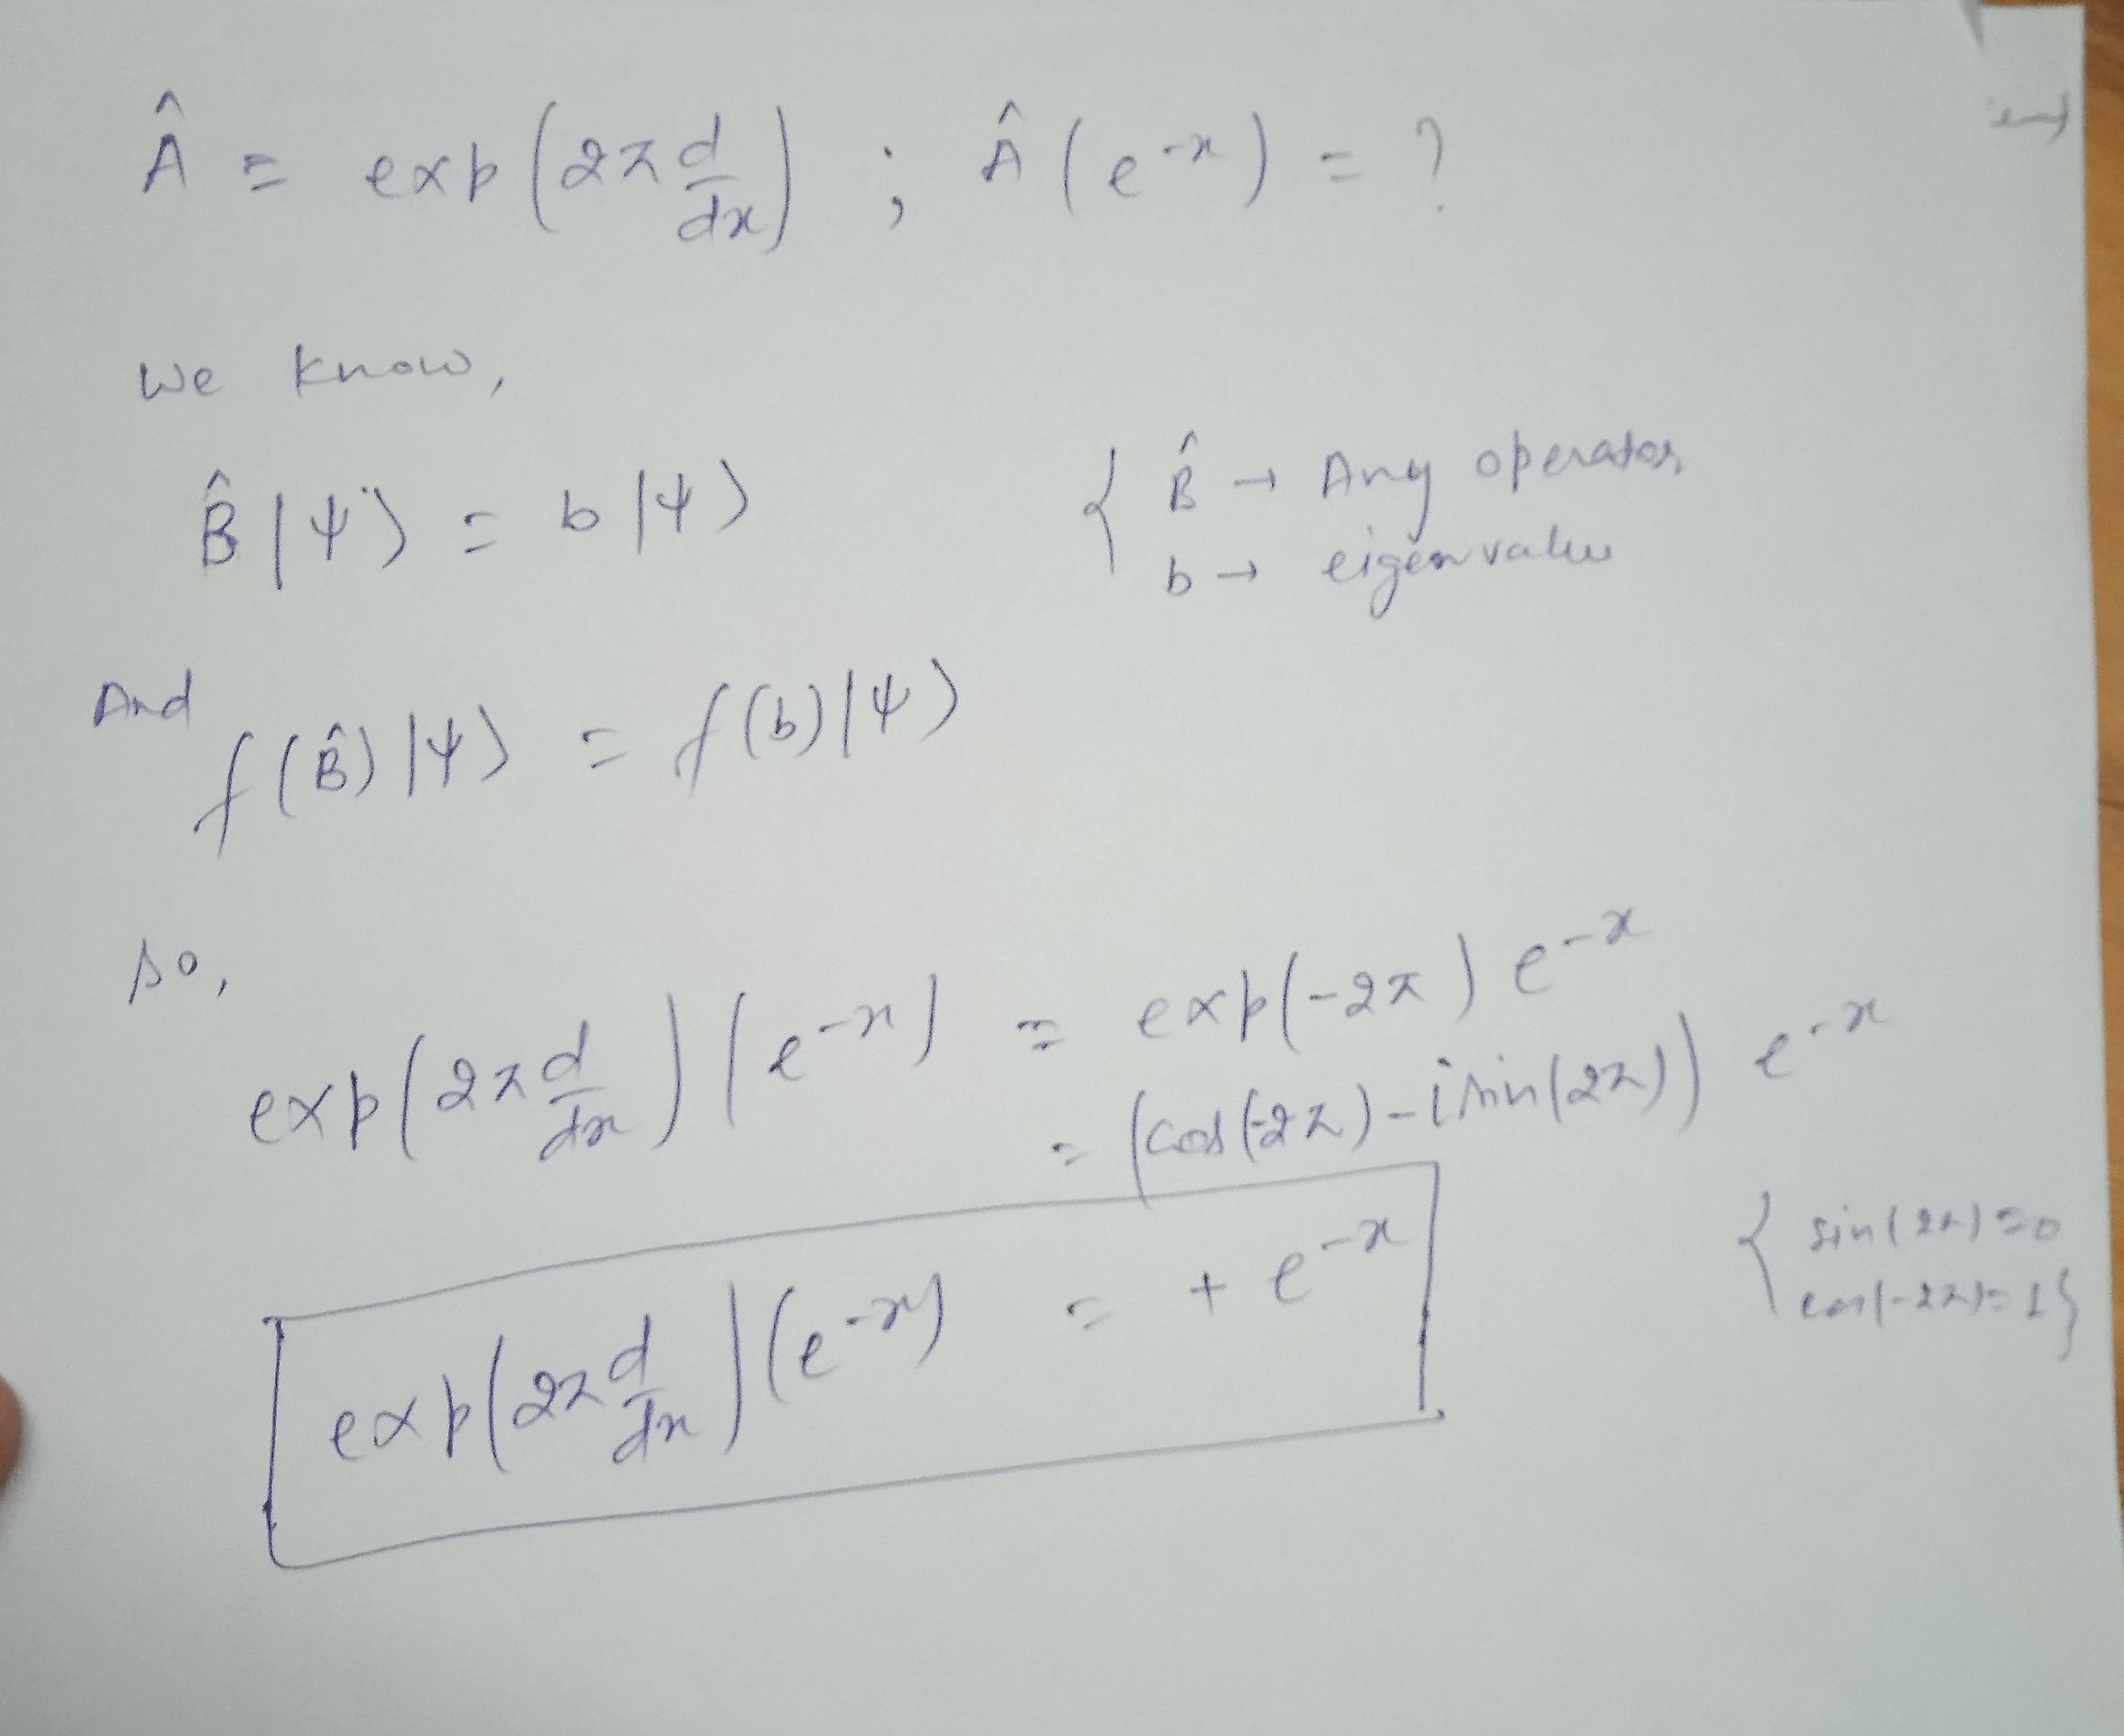 Â = exp(2π d/dx) ; Â(e^-x) = ?
We know,
B̂|ψ⟩ = b|ψ⟩ { B̂ → Any operator
b → eigenvalue
And
f(B̂)|ψ⟩ = f(b)|ψ⟩
so,
exp(2π d/dx)(e^-x) = exp(-2π) e^-x
= (cos(-2π) - i sin(2π)) e^-x
exp(2π d/dx)(e^-x) = + e^-x { sin(2π)=0
cos(-2π)=1}